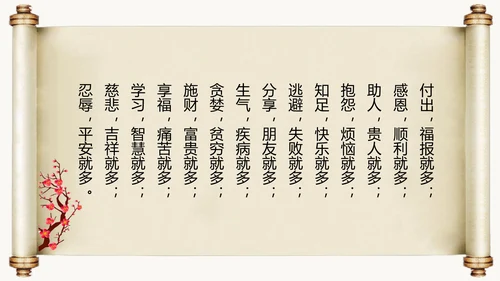 付出，福报就多；
感恩，顺利就多；
助人，贵人就多；
抱怨，烦恼就多；
知足，快乐就多；
逃避，失败就多；
分享，朋友就多；
生气，疾病就多；
贪婪，贫穷就多；
施财，富贵就多；
享福，痛苦就多；
学习，智慧就多；
慈悲，吉祥就多；
忍辱，平安就多。